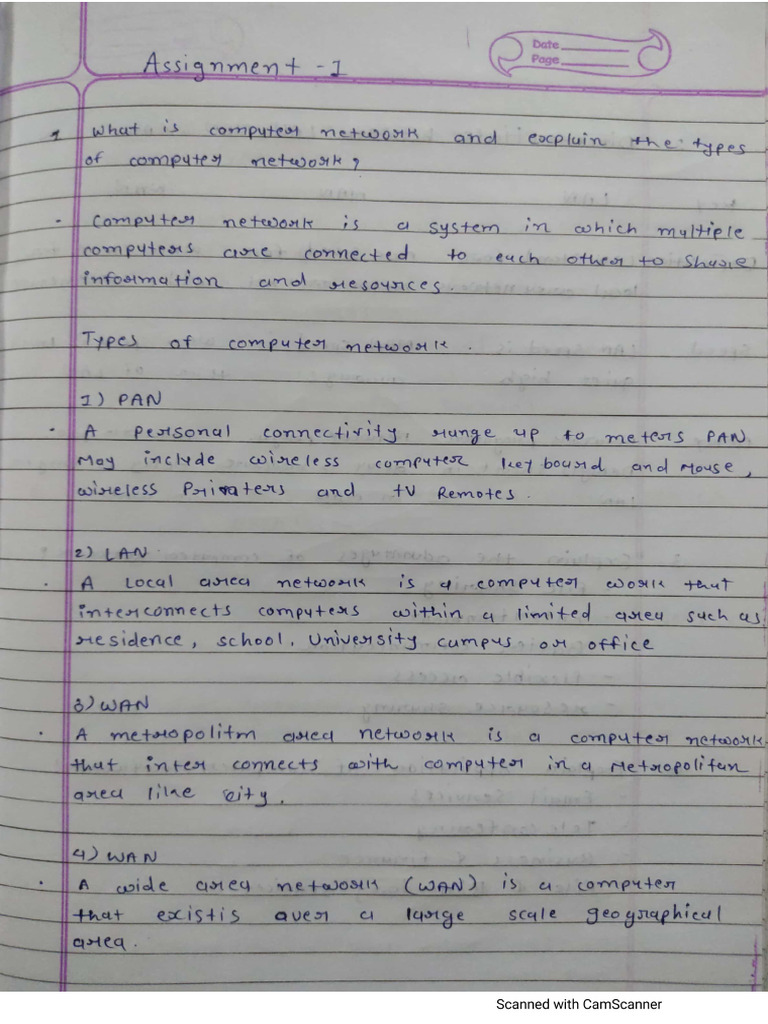 Assignment - 1
Date
Page
1 What is computer network and excplain the types
of computer network?
Computer network is a system in which multiple
computers are connected to each other to share
information and resources.
Types of computer network.
1) PAN
A personal connectivity, range up to meters PAN
May include wireless computer key board and Mouse,
wireless Printers and TV Remotes.
2) LAN
A Local area network is a computer work that
interconnects computers within a limited area such as
residence, school, University campus or office
3) WAN
A metropolitm area network is a computer network
that inter connects with computer in a Metropolitan
area like city.
4) WAN
A wide area network (WAN) is a computer
that existis aver a large scale geographical
area.
Scanned with CamScanner